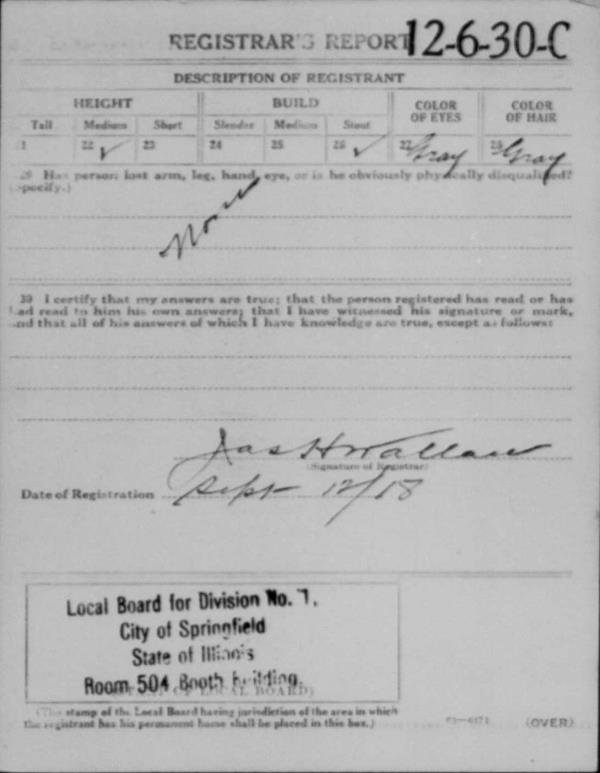 REGISTRAR'S REPORT 12-6-30-C
DESCRIPTION OF REGISTRANT
HEIGHT BUILD COLOR OF EYES COLOR OF HAIR
Tall Medium Short Slender Medium Stout
1 22 ✓ 23 24 25 26 ✓ 27 Gray 28 Gray
29 Has person lost arm, leg, hand, eye, or is he obviously physically disqualified?
(Specify.)
None
30 I certify that my answers are true; that the person registered has read or has
had read to him his own answers; that I have witnessed his signature or mark,
and that all of his answers of which I have knowledge are true, except as follows:
Jas H Wallace
(Signature of Registrar)
Date of Registration Sept 12/18
Local Board for Division No. 1.
City of Springfield
State of Illinois
Room 504 Booth building.
(STAMP OF LOCAL BOARD)
(The stamp of the Local Board having jurisdiction of the area in which
the registrant has his permanent home shall be placed in this box.)
(OVER)